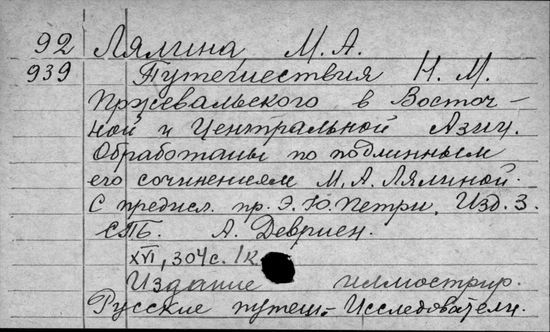 92 Лялина, М. А.
939 Путешествия Н. М.
Пржевальского в Восточ-
ной и Центральной Азии.
Обработаны по подлинным
его сочинениям М. А. Лялиной.
С предисл. пр. Э. Ю. Петри. Изд. 3.
СПб. А. Девриен.
XVI, 304 с. 1 к.
Издание иллюстрир.
Русские путеш.-Исследователи.